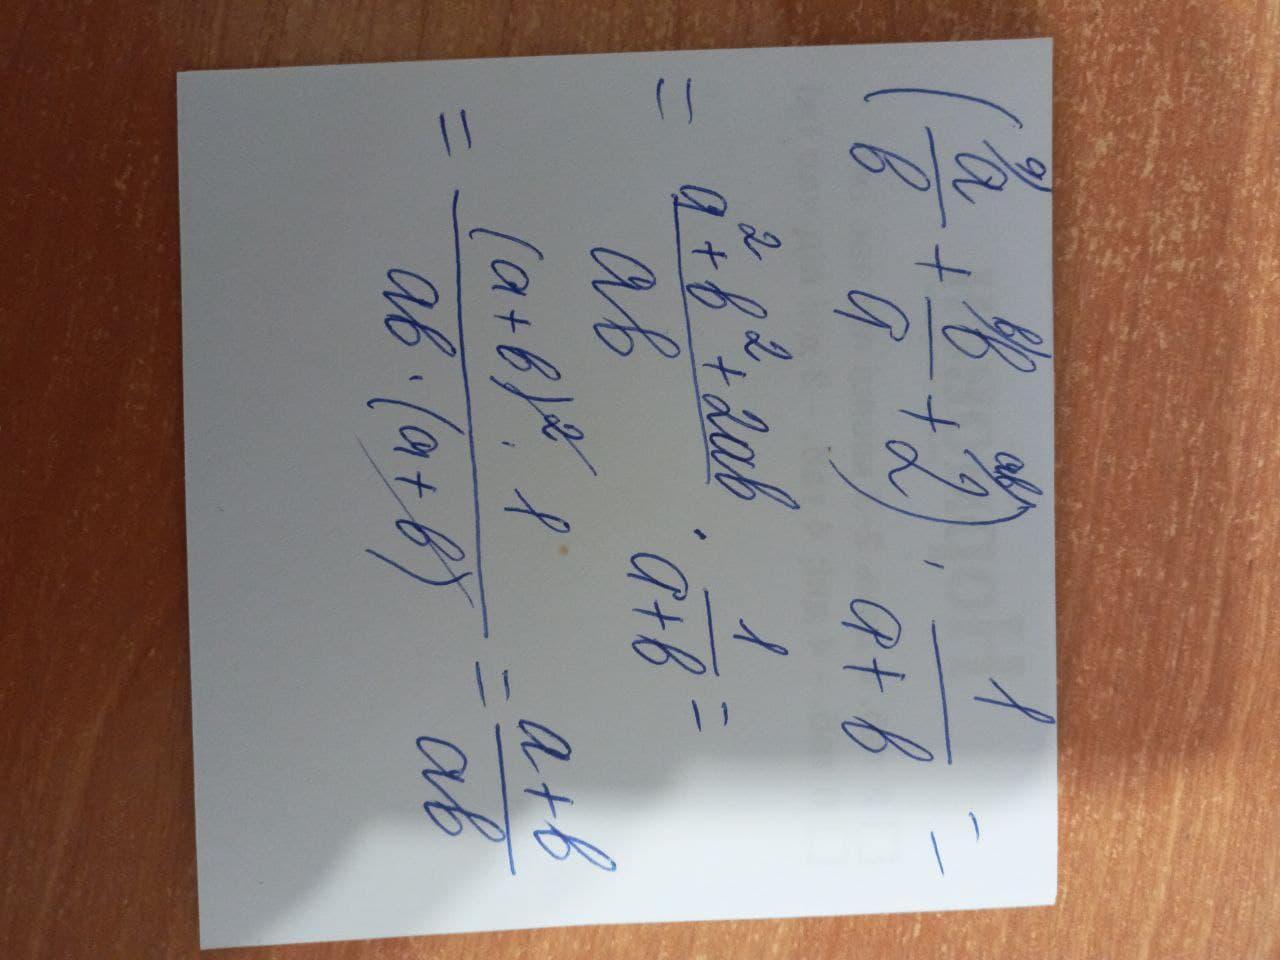 (a/b + b/a + 2) · 1/(a+b) =
= (a² + b² + 2ab)/ab · 1/(a+b) =
= ((a+b)² · 1)/(ab · (a+b)) = (a+b)/ab